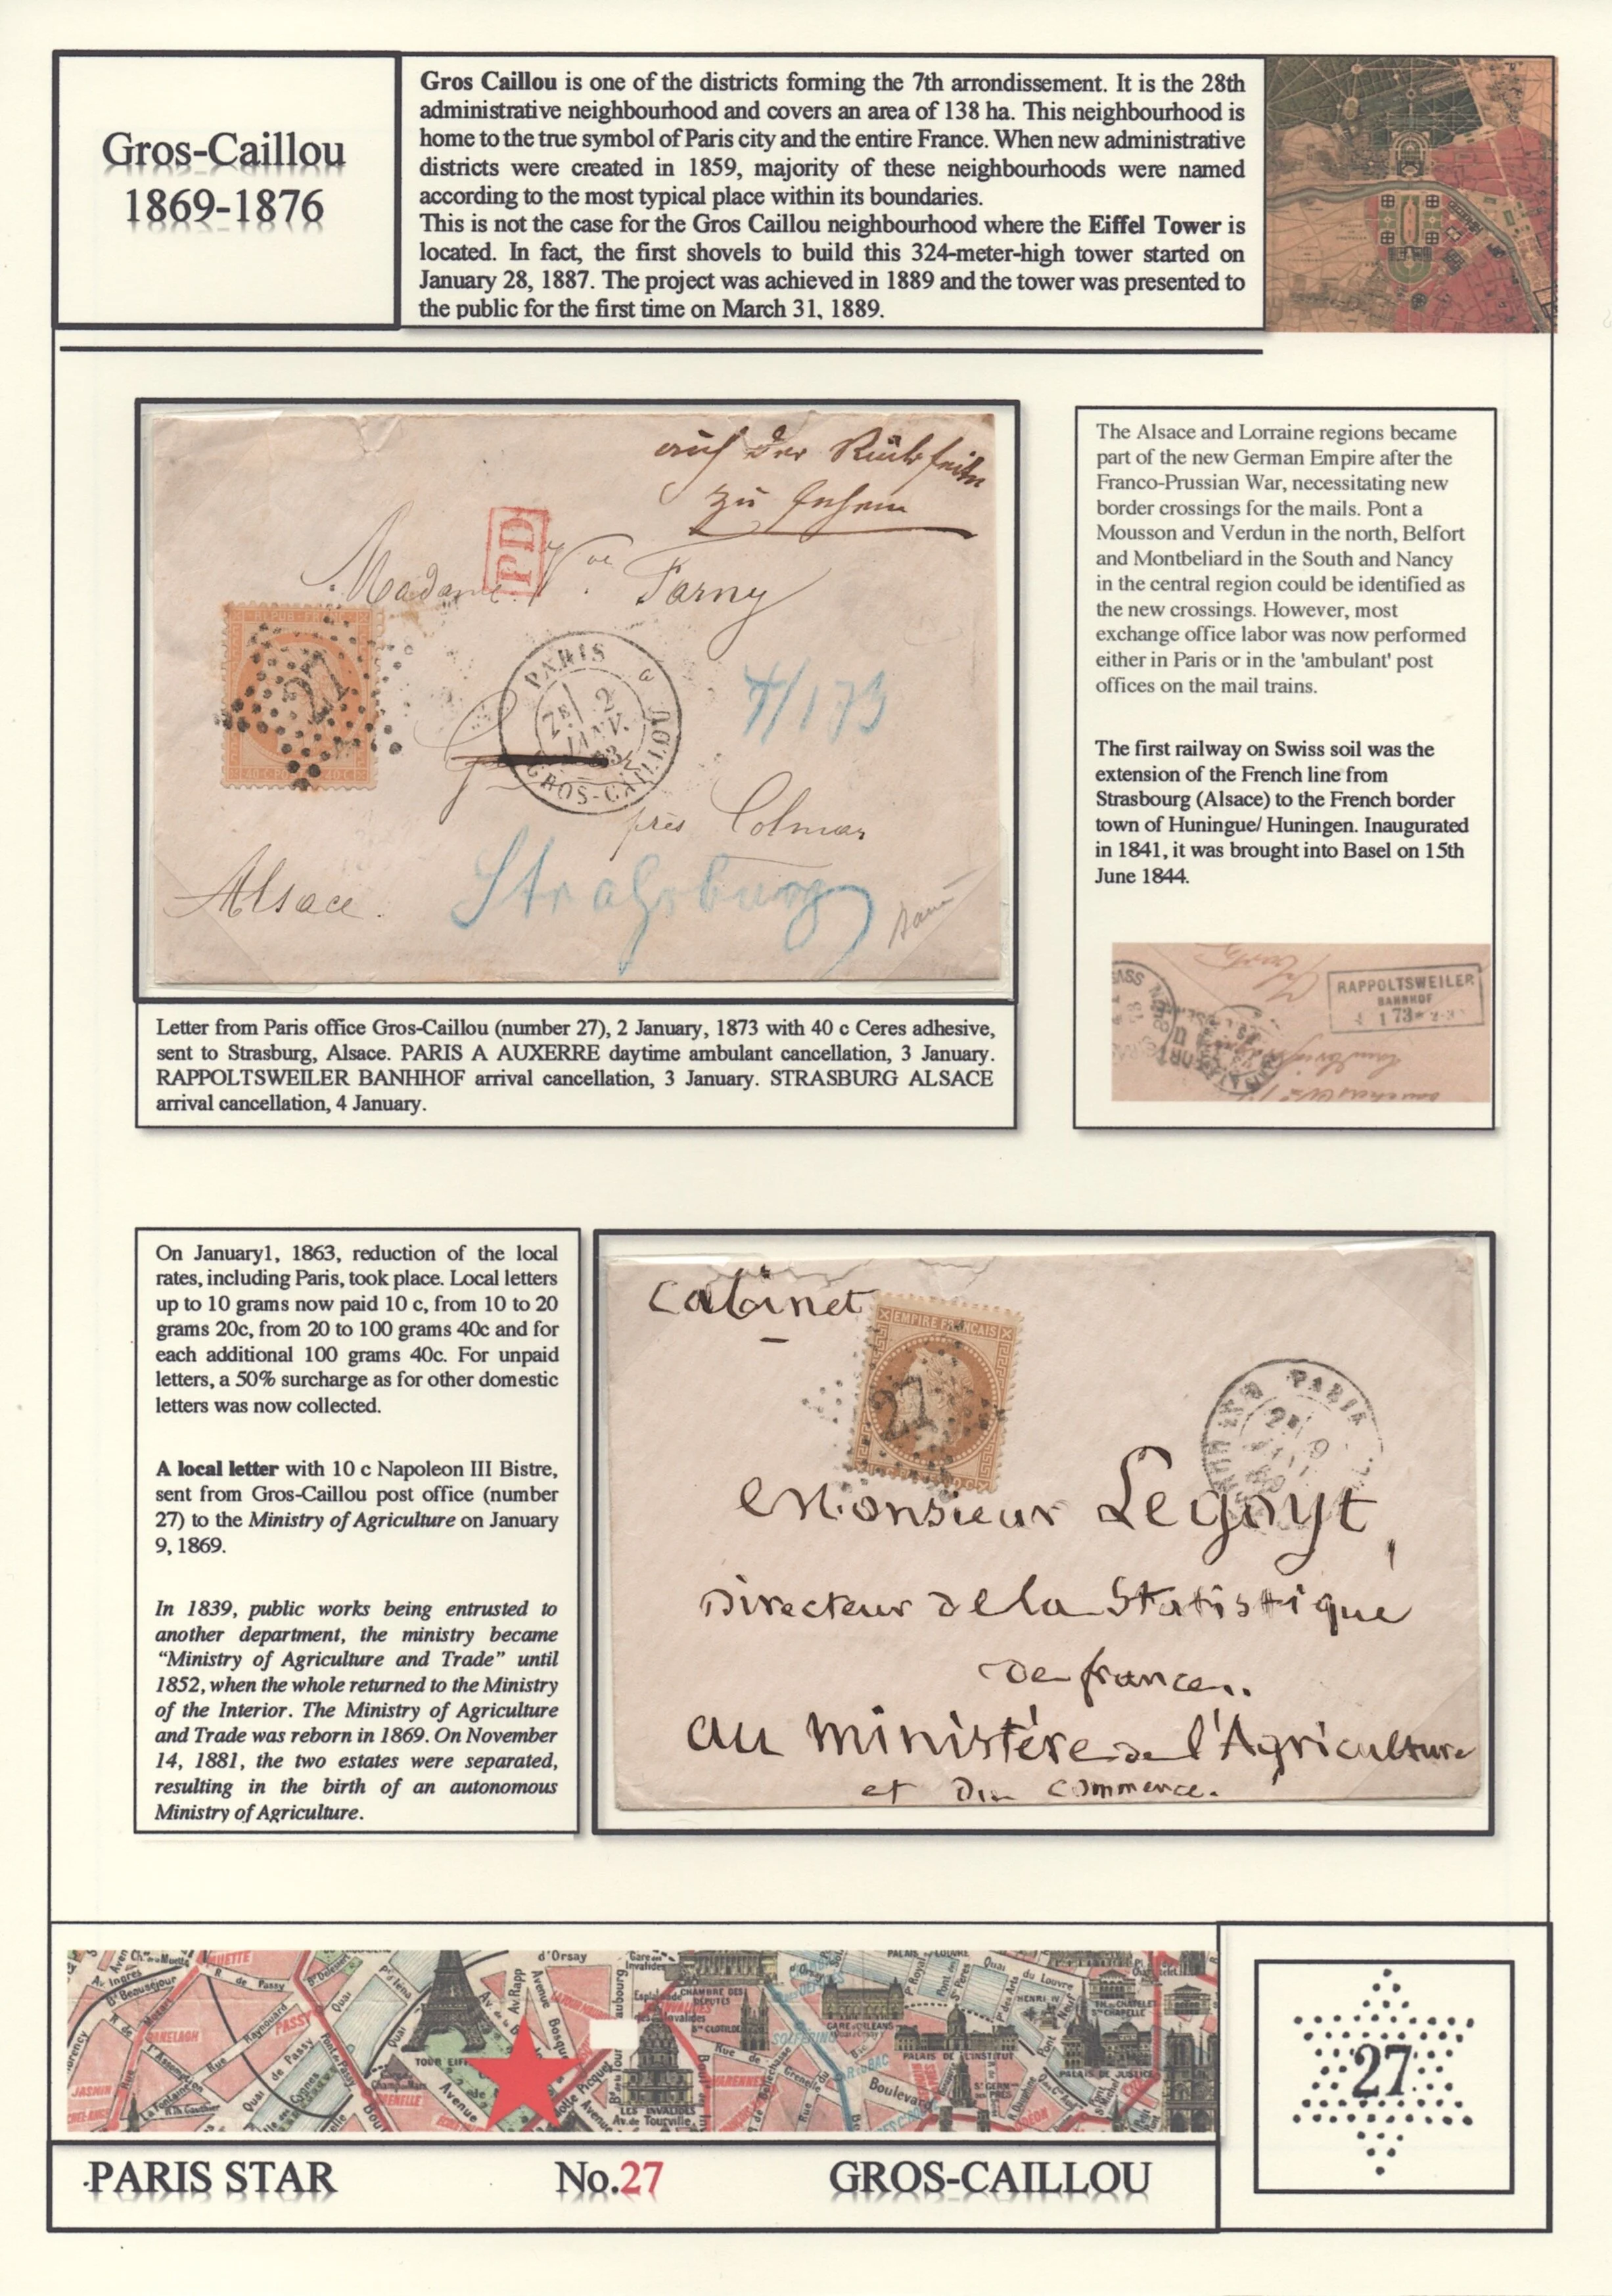 Gros-Caillou
1869-1876
Gros Caillou is one of the districts forming the 7th arrondissement. It is the 28th
administrative neighbourhood and covers an area of 138 ha. This neighbourhood is
home to the true symbol of Paris city and the entire France. When new administrative
districts were created in 1859, majority of these neighbourhoods were named
according to the most typical place within its boundaries.
This is not the case for the Gros Caillou neighbourhood where the Eiffel Tower is
located. In fact, the first shovels to build this 324-meter-high tower started on
January 28, 1887. The project was achieved in 1889 and the tower was presented to
the public for the first time on March 31, 1889.
auf der Rückseite
zu sehen
PD
Madame Vve Farny
REPUB FRANC
27
40 C POSTE 40 C
PARIS
2E 2
JANV.
73
GROS-CAILLOU
4/1 73
près Colmar
Alsace.
Straßburg
The Alsace and Lorraine regions became
part of the new German Empire after the
Franco-Prussian War, necessitating new
border crossings for the mails. Pont a
Mousson and Verdun in the north, Belfort
and Montbeliard in the South and Nancy
in the central region could be identified as
the new crossings. However, most
exchange office labor was now performed
either in Paris or in the 'ambulant' post
offices on the mail trains.
The first railway on Swiss soil was the
extension of the French line from
Strasbourg (Alsace) to the French border
town of Huningue/ Huningen. Inaugurated
in 1841, it was brought into Basel on 15th
June 1844.
RAPPOLTSWEILER
BAHNHOF
4 1 73
Letter from Paris office Gros-Caillou (number 27), 2 January, 1873 with 40 c Ceres adhesive,
sent to Strasburg, Alsace. PARIS A AUXERRE daytime ambulant cancellation, 3 January.
RAPPOLTSWEILER BANHHOF arrival cancellation, 3 January. STRASBURG ALSACE
arrival cancellation, 4 January.
On January1, 1863, reduction of the local
rates, including Paris, took place. Local letters
up to 10 grams now paid 10 c, from 10 to 20
grams 20c, from 20 to 100 grams 40c and for
each additional 100 grams 40c. For unpaid
letters, a 50% surcharge as for other domestic
letters was now collected.
A local letter with 10 c Napoleon III Bistre,
sent from Gros-Caillou post office (number
27) to the Ministry of Agriculture on January
9, 1869.
In 1839, public works being entrusted to
another department, the ministry became
“Ministry of Agriculture and Trade” until
1852, when the whole returned to the Ministry
of the Interior. The Ministry of Agriculture
and Trade was reborn in 1869. On November
14, 1881, the two estates were separated,
resulting in the birth of an autonomous
Ministry of Agriculture.
Cabinet
EMPIRE FRANCAIS
27
PARIS
2E 9
Monsieur Legoyt,
Directeur de la Statistique
de france..
au ministère de l'Agriculture
et du commerce.
MUETTE
d'Orsay
Av. Ingres
Bd Beauséjour
R. de Passy
Quai
Av. Rapp
Avenue
Bosquet
Esplanade
des Invalides
CHAMBRE DES
DÉPUTÉS
Ste CLOTILDE
SOLFERINO
GARE D'ORLÉANS
Quai du Louvre
HENRI IV
Pont Neuf
TH. du CHATELET
Ste CHAPELLE
PALAIS DE L'INSTITUT
PALAIS DE JUSTICE
RANELAGH
Raynouard
PASSY
Rue
JASMIN
La Fontaine
Quai de Passy
TOUR EIFF
Avenue
LES INVALIDES
Av. de Tourville
VARENNES
Rue de Grenelle
R. du BAC
Boulevard
St GERM
des PRÉS
ODÉON
27
PARIS STAR
No.27
GROS-CAILLOU